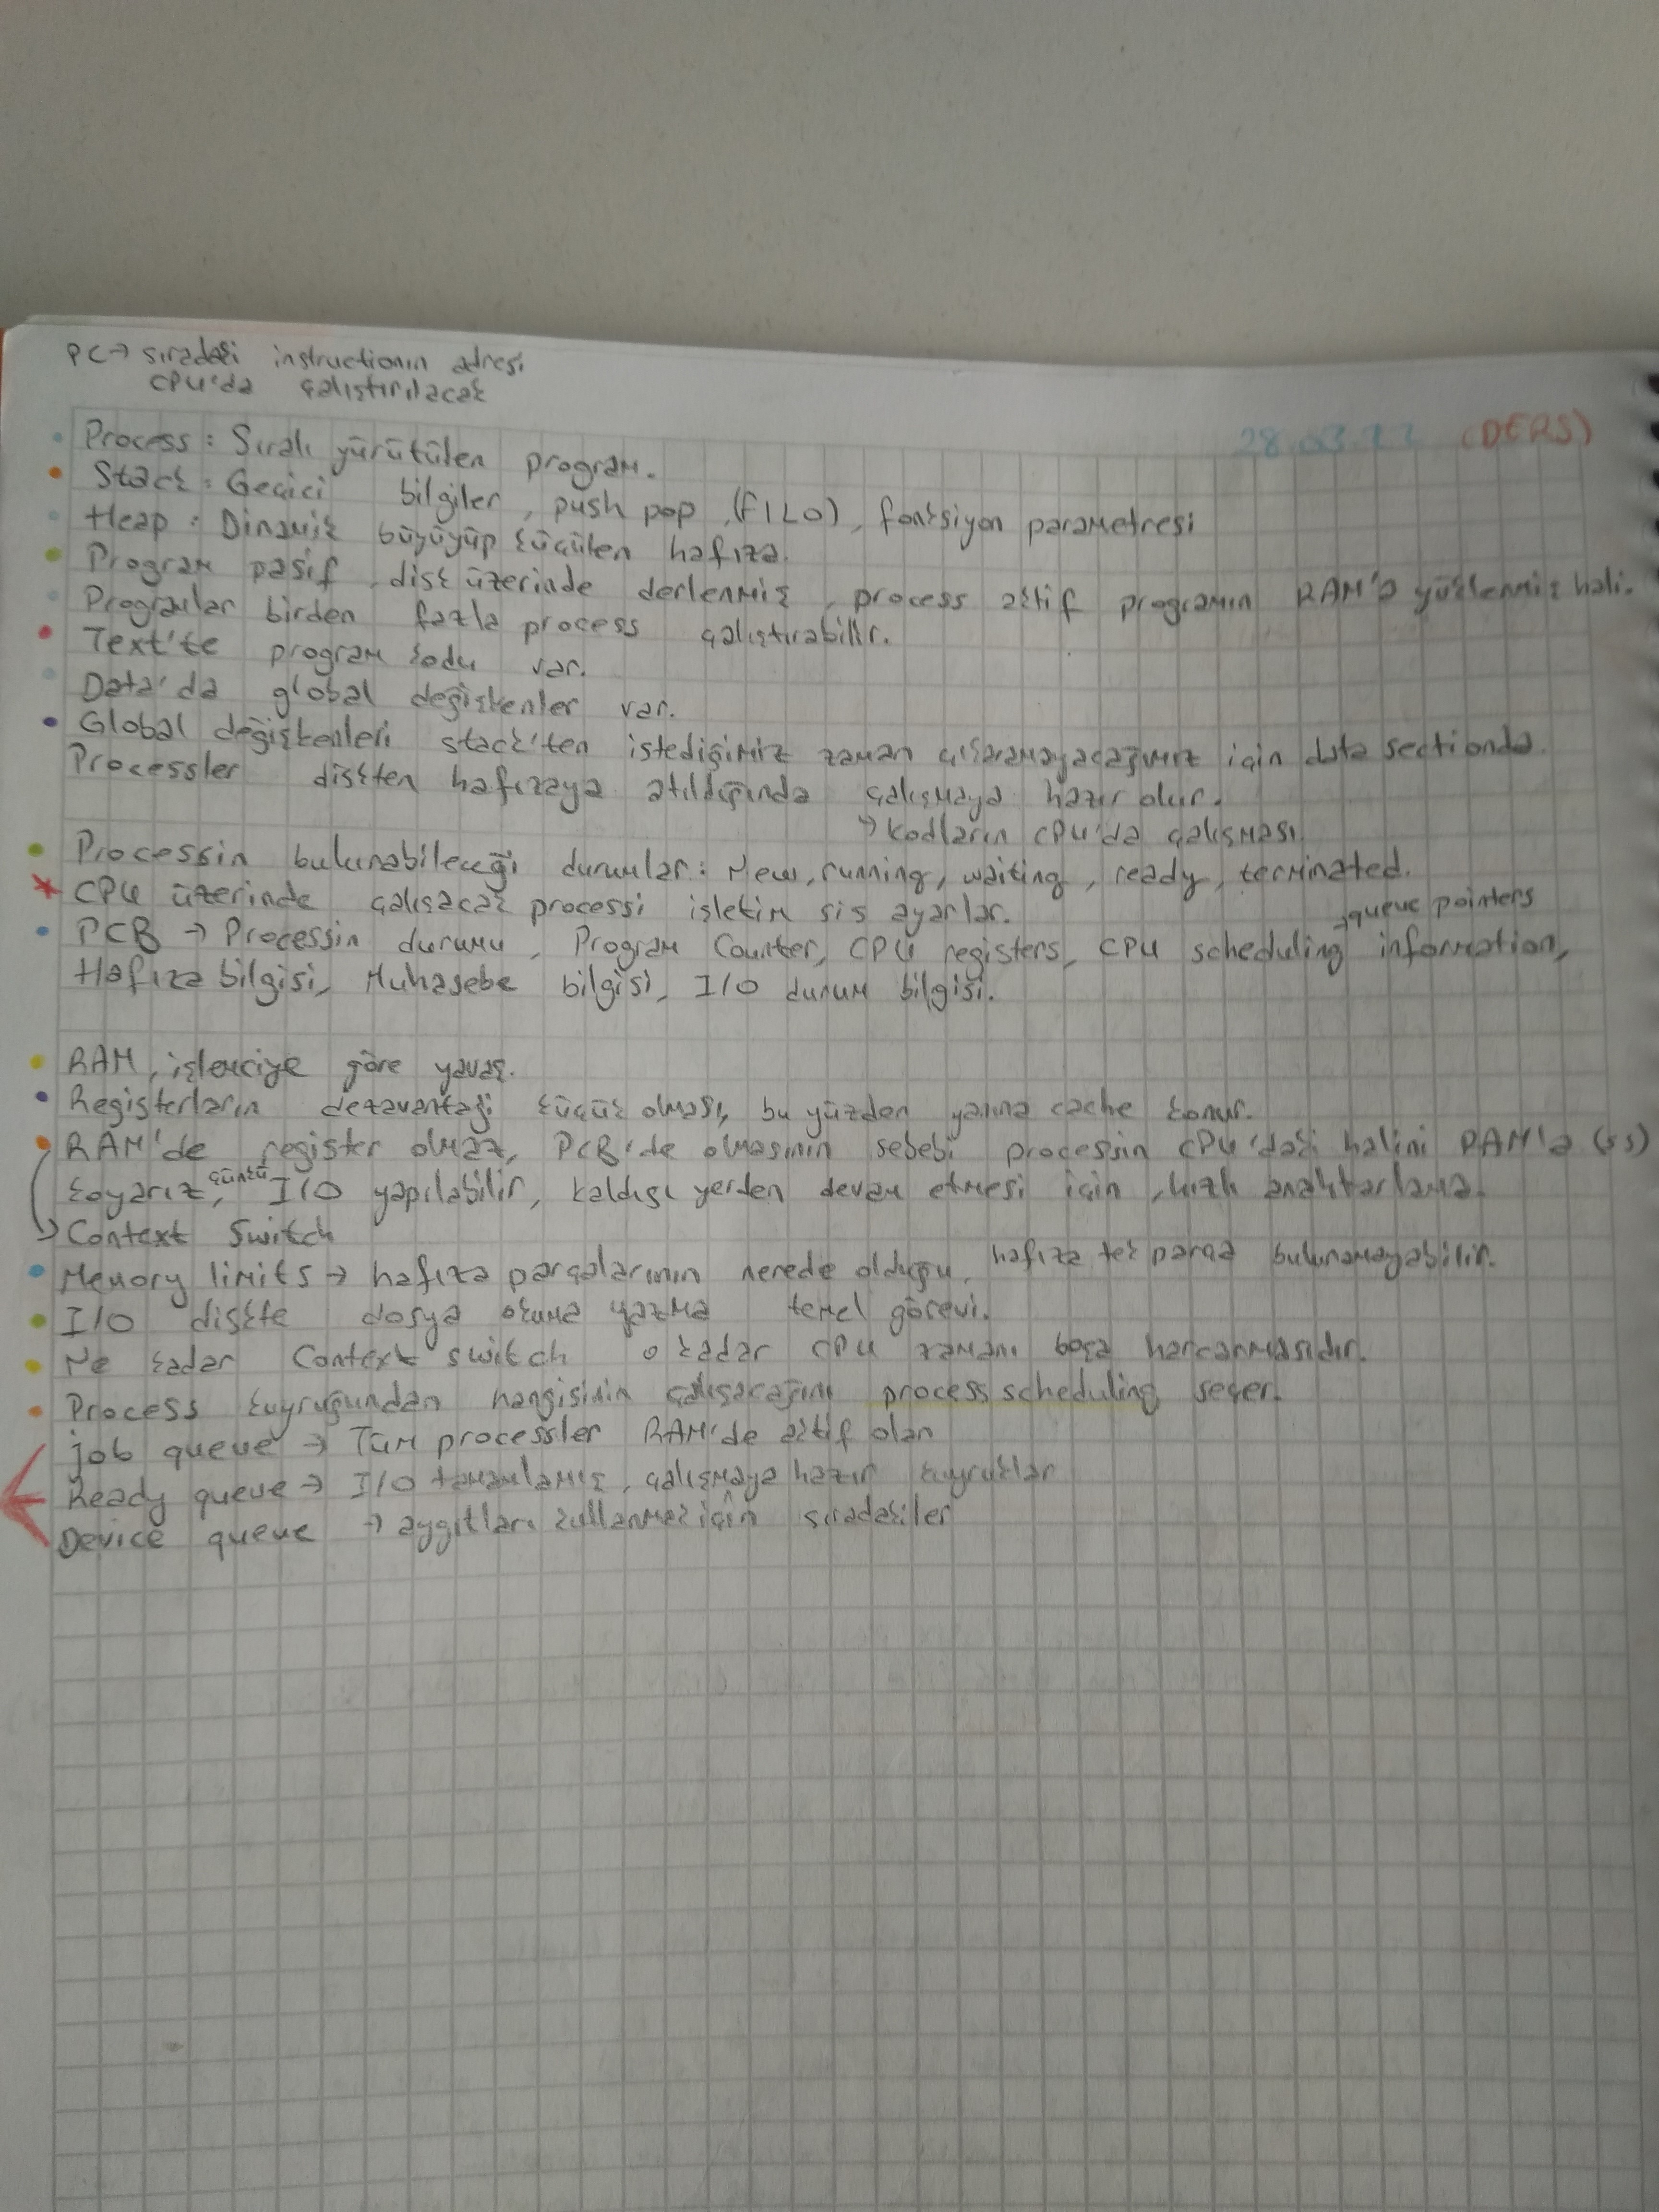 PC → sıradaki instructionın adresi
CPU'da çalıştırılacak
(DERS)
Process : Sıralı yürütülen program.
Stack : Geçici bilgiler, push pop, (FILO), fonksiyon parametresi
Heap : Dinamik büyüyüp küçülen hafıza.
Program pasif, disk üzerinde derlenmiş, process aktif programın RAM'a yüklenmiş hali.
Programlar birden fazla process çalıştırabilir.
Text'te program kodu var.
Data'da global değişkenler var.
Global değişkenleri stack'ten istediğimiz zaman çıkaramayacağımız için data sectionda.
Processler diskten hafızaya atıldığında çalışmaya hazır olur.
→ kodların CPU'da çalışması
Processin bulunabileceği durumlar : New, running, waiting, ready, terminated.
CPU üzerinde çalışacak processi işletim sis ayarlar.
→ queue pointers
PCB → Processin durumu, Program Counter, CPU registers, CPU scheduling information,
Hafıza bilgisi, Muhasebe bilgisi, I/O durum bilgisi.
RAM, işlemciye göre yavaş.
Registerların dezavantajı küçük olması, bu yüzden yanına cache konur.
RAM'de register olmaz, PCB'de olmasının sebebi processin CPU'daki halini RAM'a (ss)
koyarız, çünkü I/O yapılabilir, kaldığı yerden devam etmesi için, hızlı anahtarlama.
→ Context Switch
Memory limits → hafıza parçalarının nerede olduğu, hafıza tek parça bulunamayabilir.
I/O diskte dosya okuma yazma temel görevi.
Ne kadar Context switch o kadar CPU zamanı boşa harcanmasıdır.
Process kuyruğundan hangisinin çalışacağını process scheduling seçer.
job queue → Tüm processler RAM'de aktif olan
Ready queue → I/O tamamlamış, çalışmaya hazır kuyruklar
Device queue → aygıtları kullanmak için sıradakiler